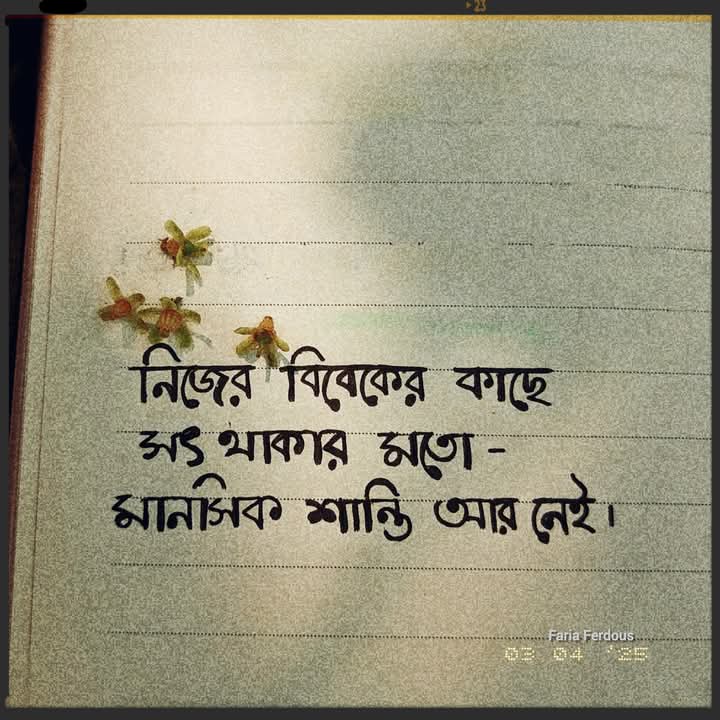 ▸23
নিজের বিবেকের কাছে
সৎ থাকার মতো -
মানসিক শান্তি আর নেই।
Faria Ferdous
03 04 '25